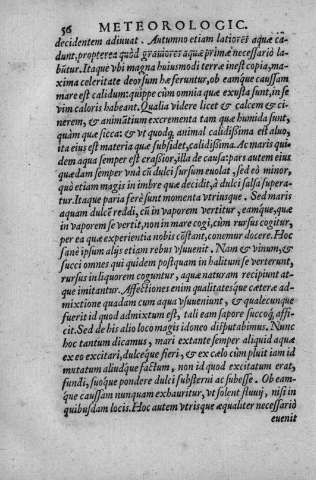 56 METEOROLOGIC.
decidentem adiuuat. Autumno etiam latiores aquæ ca-
dunt, propterea quòd grauiores aquæ primæ necessariò la-
būtur. Itaque vbi magna huiusmodi terræ inest copia, ma-
xima celeritate deorsum hæ feruntur, ob eamque caussam
mare est calidum: quippe cùm omnia quæ exusta sunt, in se
vim caloris habeant. Qualia videre licet & calcem & ci-
nerem, & animātium excrementa tam quæ humida sunt,
quàm quæ sicca: & vt quodq; animal calidissima est aluo,
ita eius est materia quæ subsidet, calidissima. Ac maris qui-
dem aqua semper est crassior, illa de causa: pars autem eius
quædam semper vnà cū dulci sursum euolat, sed eò minor,
quò etiam magis in imbre quæ decidit, à dulci salsa supera-
tur. Itaque paria ferè sunt momenta vtriusque. Sed maris
aquam dulcē reddi, cū in vaporem vertitur, eamque, quæ
in vaporem se vertit, non in mare cogi, cùm rursus cogitur,
per ea quæ experientia nobis cōstant, conemur docere. Hoc
sanè ipsum alys etiam rebus vsuuenit. Nam & vinum, &
succi omnes qui quidem postquam in halitum se verterunt,
rursus in liquorem coguntur, aquæ naturam recipiunt at-
que imitantur. Affectiones enim qualitatesque cæteræ ad-
mixtione quadam cum aqua vsuueniunt, & qualecunque
fuerit id quod admixtum est, tali eam sapore succoq; affi-
cit. Sed de his alio loco magis idoneo disputabimus. Nunc
hoc tantum dicamus, mari extante semper aliquid aquæ
ex eo excitari, dulceque fieri, & ex cælo cùm pluit iam id
mutatum aliudque factum, non id quod excitatum erat,
fundi, suoque pondere dulci substerni ac subesse. Ob eam-
que caussam nunquam exhauritur, vt solent fluuij, nisi in
quibusdam locis. Hoc autem vtrisque æqualiter necessariò
euenit